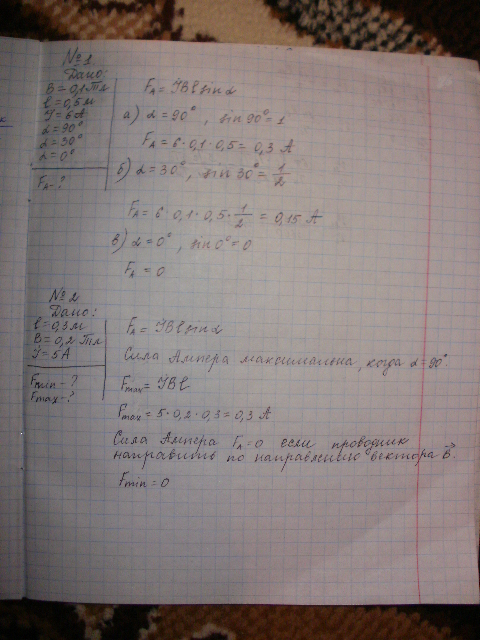 №1
Дано:
B = 0,1 Тл
l = 0,5 м
I = 6 А
α = 90°
α = 30°
α = 0°
Fᴀ - ?
Fᴀ = IBl sin α
а) α = 90°, sin 90° = 1
Fᴀ = 6 · 0,1 · 0,5 = 0,3 А
б) α = 30°, sin 30° = 1/2
Fᴀ = 6 · 0,1 · 0,5 · 1/2 = 0,15 А
в) α = 0°, sin 0° = 0
Fᴀ = 0
№2
Дано:
l = 0,3 м
B = 0,2 Тл
I = 5 А
Fmin - ?
Fmax - ?
Fᴀ = IBl sin α
Сила Ампера максимальна, когда α = 90°.
Fmax = IBl
Fmax = 5 · 0,2 · 0,3 = 0,3 А
Сила Ампера Fᴀ = 0 если проводник
направить по направлению вектора B⃗.
Fmin = 0